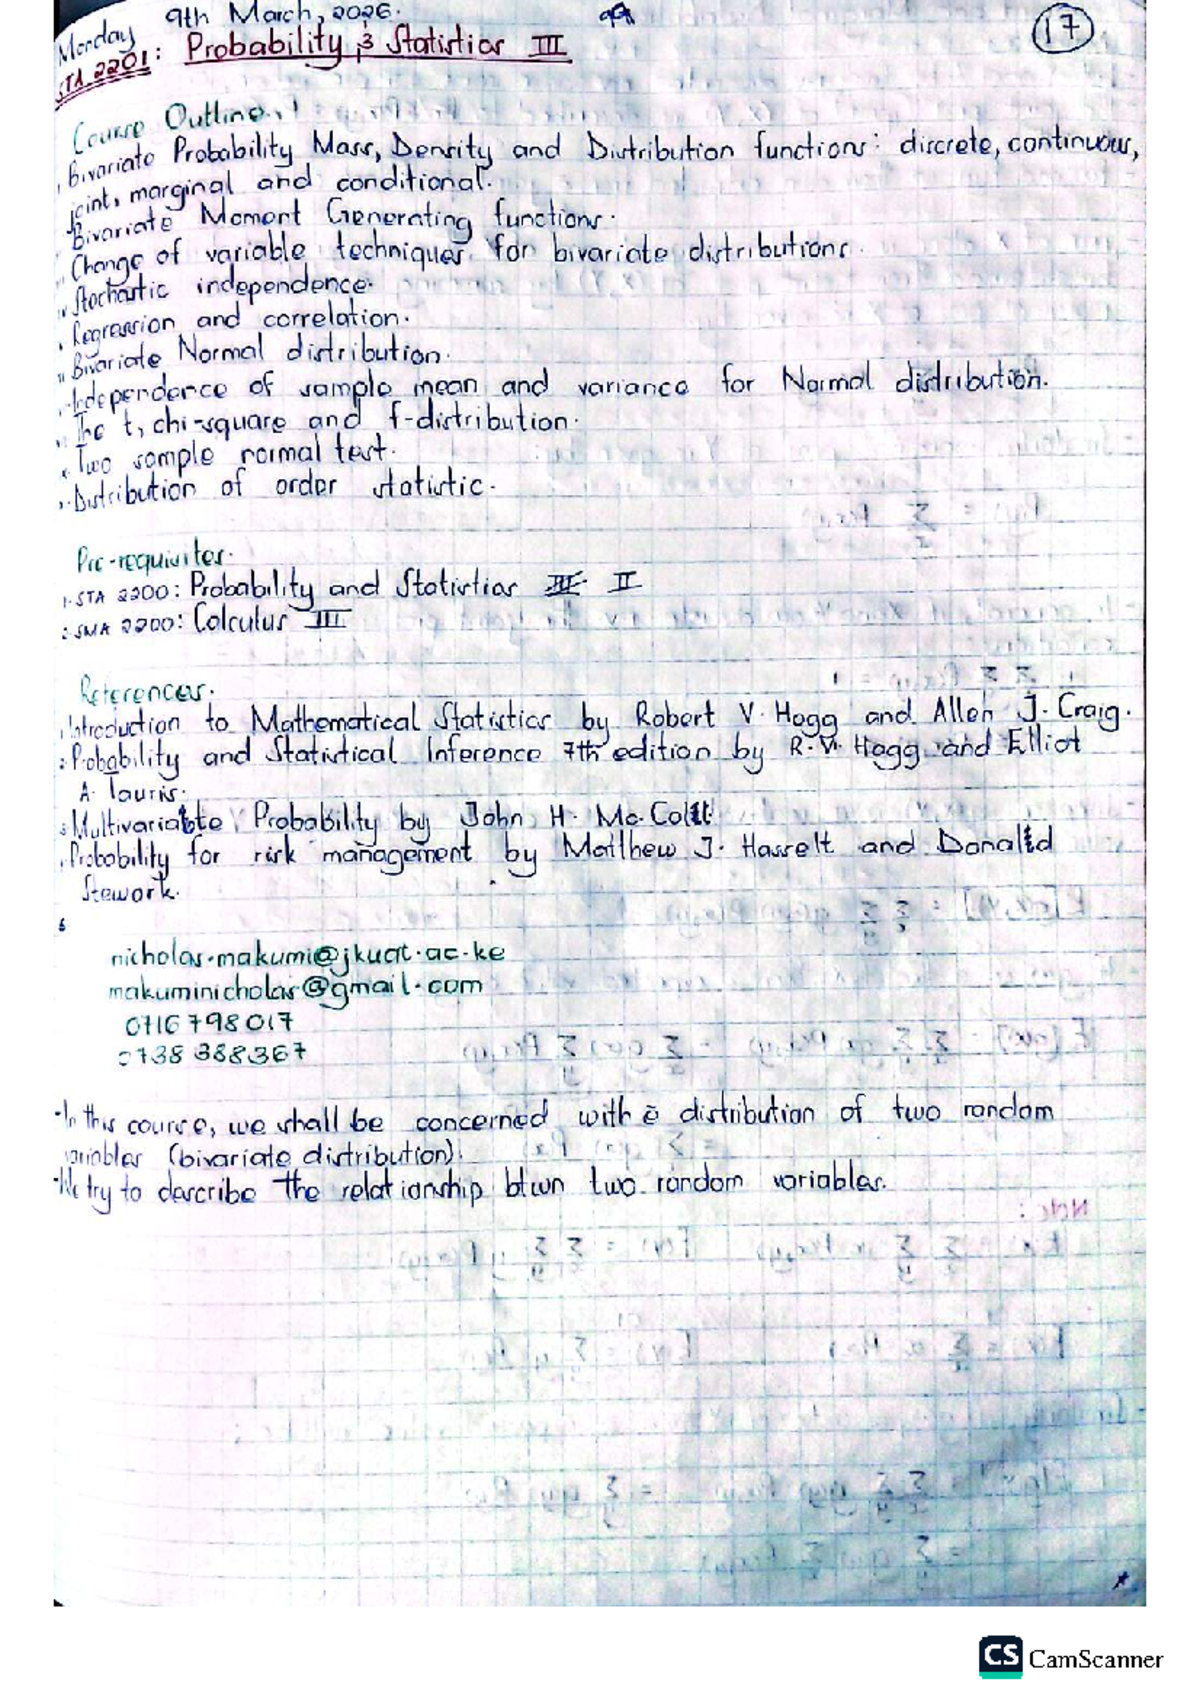 Monday 9th March, 2026.
17
STA 2201: Probability & Statistics III
Course Outline
Bivariate Probability Mass, Density and Distribution functions: discrete, continuous,
joint, marginal and conditional.
Bivariate Moment Generating functions.
Change of variable techniques for bivariate distributions.
Stochastic independence.
Regression and correlation.
Bivariate Normal distribution.
Independence of sample mean and variance for Normal distribution.
The t, chi-square and f-distribution.
Two sample normal test.
Distribution of order statistic.
Pre-requisites.
1. STA 2200: Probability and Statistics II
2. SMA 2200: Calculus III
References.
Introduction to Mathematical Statistics by Robert V. Hogg and Allen J. Craig.
2. Probability and Statistical Inference 7th edition by R.V. Hogg and Elliot
A. Tauris.
3. Multivariate Probability by John H. Mc.Coll
Probability for risk management by Matthew J. Hasselt and Donald
Stework.
5
nicholas.makumi@jkuat.ac.ke
makuminicholas@gmail.com
0716798017
0738388367
-In this course, we shall be concerned with ē distribution of two random
variables (bivariate distribution).
-We try to describe the relationship btwn two random variables.
CS CamScanner